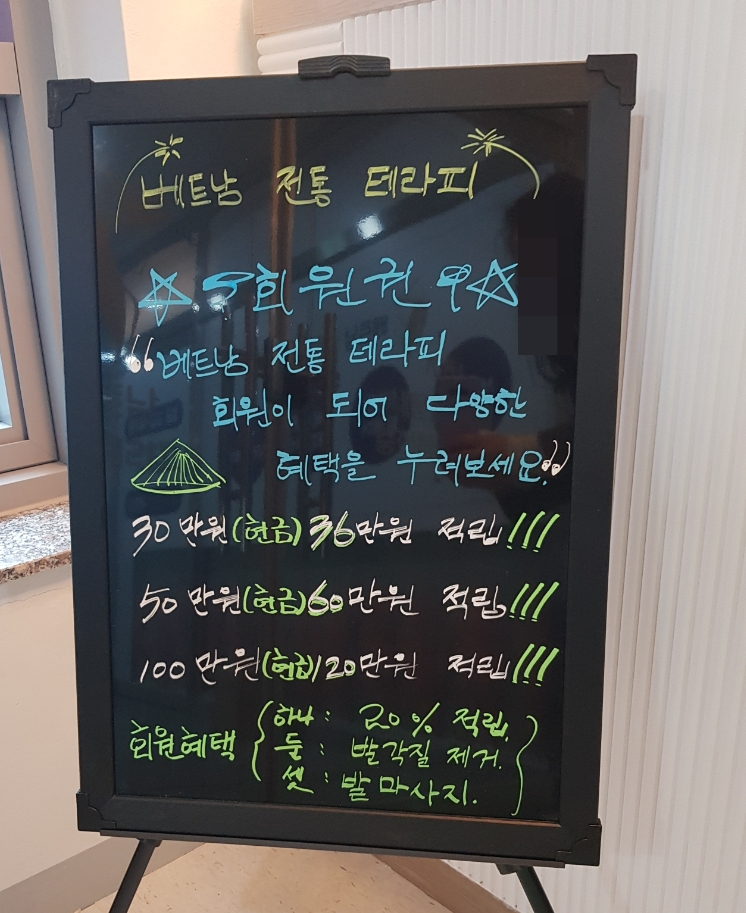 베트남 전통 테라피
회원권
“베트남 전통 테라피
회원이 되어 다양한
혜택을 누려보세요.”
30만원(현금) 36만원 적립!!!
50만원(현금) 60만원 적립!!!
100만원(현금) 120만원 적립!!!
회원혜택
하나 : 20% 적립.
둘 : 발각질 제거.
셋 : 발 마사지.